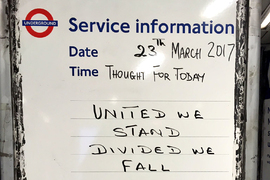 UNDERGROUND
Service information
Date 23TH MARCH 2017
Time THOUGHT FOR TODAY
UNITED WE
STAND
DIVIDED WE
FALL